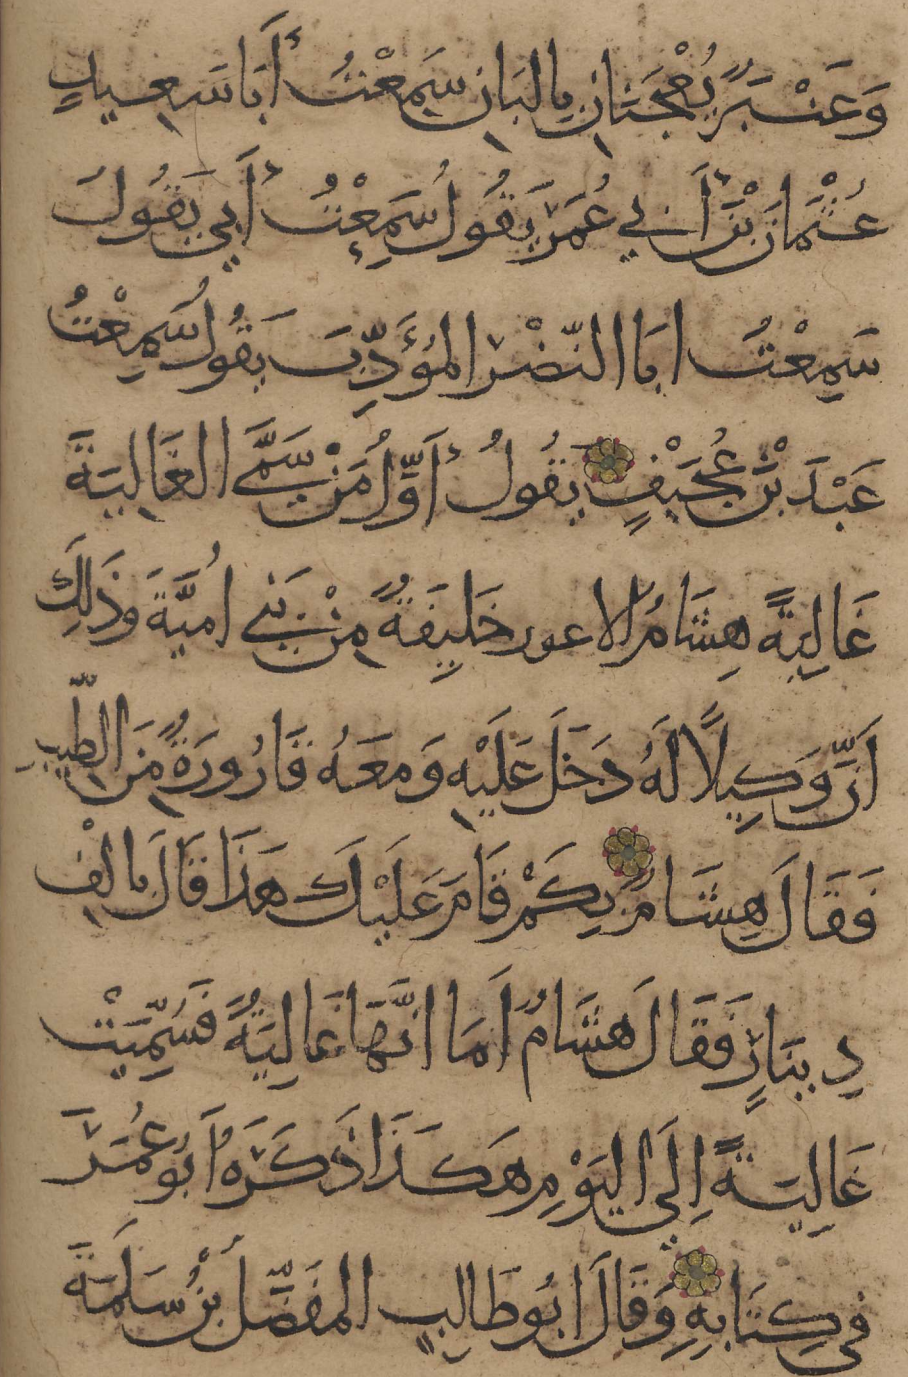 وَعَنْبَرٌ يُعْجَنَانِ بِالبَانِ سَمِعْتُ أَبَا سَعِيدٍ
عُثْمَانَ بْنَ أَبِي عُمَرَ يَقُولُ سَمِعْتُ أَبِي يَقُولُ
سَمِعْتُ ابَا النَّضْرِ المُؤَدِّبَ يَقُولُ سَمِعْتُ
عَبْدَ بْنَ عُجَيْفٍ يَقُولُ أَوَّلُ مَنْ سَمَّى الغَالِيَةَ
غَالِيَةً هِشَامُ الاعور خَلِيفَةٌ مِنْ بَنِي امُيَّةَ وَذَلِكَ
اَنَّ وَكِيلًا لَهُ دَخَلَ عَلَيْهِ وَمَعَهُ قَارُورَةٌ مِنَ الطِّيبِ
فَقَالَ هِشَامٌ بِكَمْ قَامَ عَلَيْكَ هَذَا قَالَ بِالْفِ
دِينَارٍ فَقَالَ هِشَامٌ اَمَا انَّهَا غَالِيَةٌ فَسُمِّيَتْ
غَالِيَةً اِلَى اليَوْمِ هَكَذَا ذَكَرَهُ اَبُو عُمَرَ
فِي كِتَابِهِ وَقَالَ ابُو طَالِبٍ المُفَضَّلُ بْنُ سَلَمَةَ